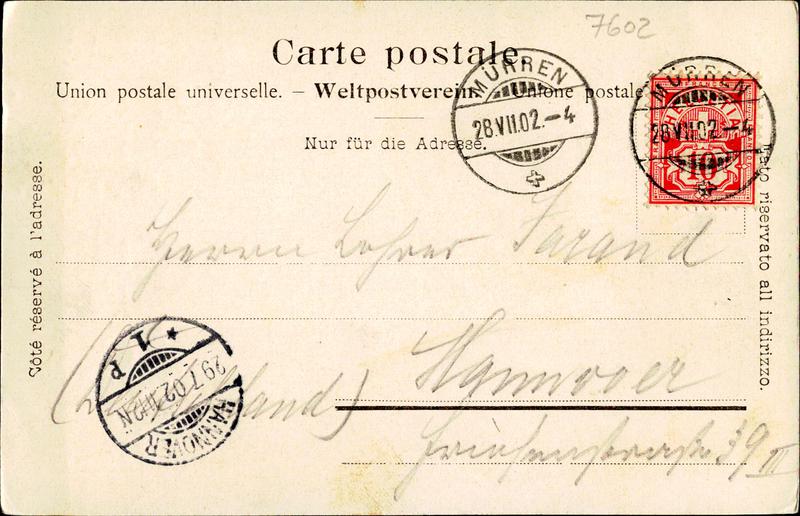 7602
Carte postale
Union postale universelle. – Weltpostverein. – Unione postale
Nur für die Adresse.
MÜRREN
28.VII.02.–4
MÜRREN
28.VII.02.–4
HELVETIA
10
Côté réservé à l'adresse.
Lato riservato all indirizzo.
Herrn Lehrer Farand
Hannover
(Deutschland)
Friesenstraße 39 III
HANNOVER
29.7.02.
* 1 P